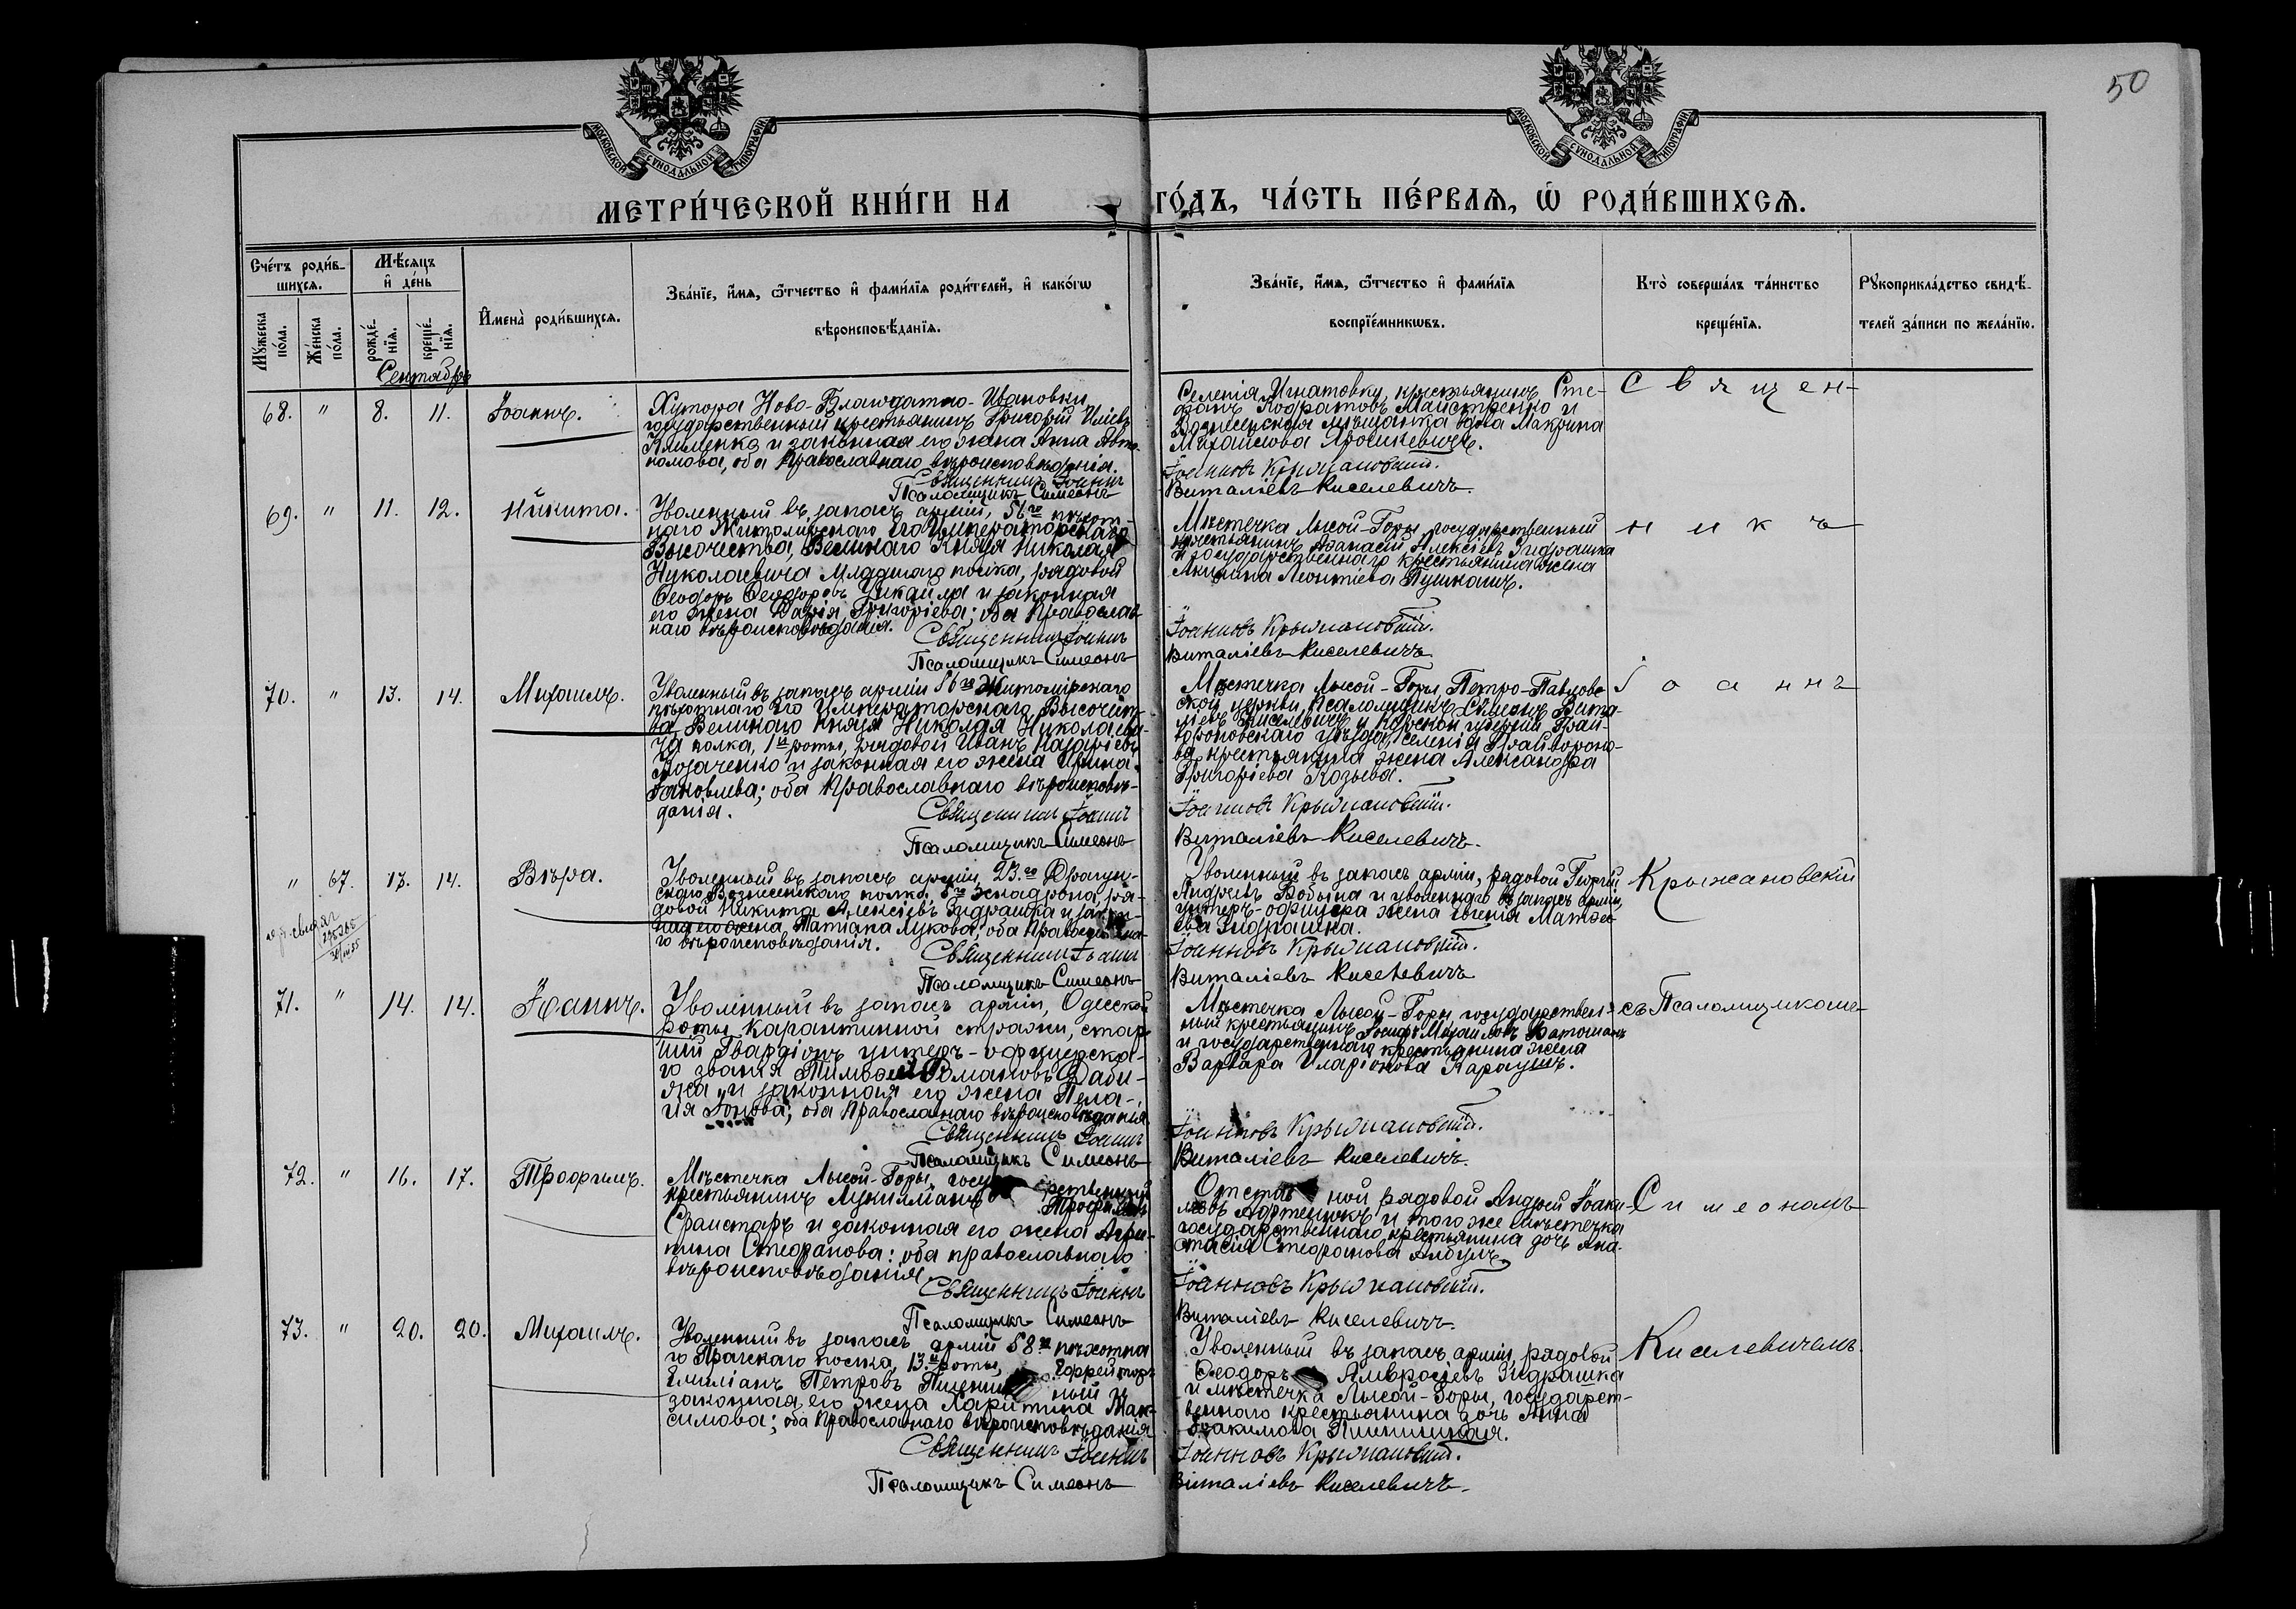 50
МОСКОВСКОЙ СѴНОДАЛЬНОЙ ТИПОГРАФІИ
МОСКОВСКОЙ СѴНОДАЛЬНОЙ ТИПОГРАФІИ
МЕТРИ́ЧЕСКОЙ КНИ́ГИ НА ГО́ДЪ, ЧА́СТЬ ПЕ́РВАѦ, Ѡ҆ РОДИ́ВШИХСѦ.
Сче́тъ роди́в-
шихсѧ.
Мѣ́сѧцъ
и҆ де́нь
Мꙋ́жеска по́ла.
Же́нска по́ла.
рожде́-нїѧ.
креще́-нїѧ.
И҆мена̀ роди́вшихсѧ.
Зва́нїе, и҆́мѧ, ѻ҆́тчество и҆ фами́лїѧ роди́телей, и҆ како́гѡ
вѣроисповѣ́данїѧ.
Зва́нїе, и҆́мѧ, ѻ҆́тчество и҆ фами́лїѧ
воспрїе́мникѡвъ.
Кто̀ соверша́лъ та́инство
креще́нїѧ.
Рꙋкоприкла́дство свидѣ́-
телей за́писи по жела́нїю.
Сентябрь
68. " 8. 11. Іоаннъ.
Хутора Ново-Благодатно-Ивановки
государственный крестьянинъ Григорій Иліевъ
Клименко и законная его жена Анна Авто-
номова, оба Православнаго вѣроисповѣданія.
Священникъ Іоаннъ
Псаломщикъ Симеонъ
Селенія Игнатовку, крестьянинъ Сте-
фанъ Кодратовъ Майстренко и
Вознесенская мѣщанка вдова Макрина
Михайлова
Іоанновъ Крыжановскій.
Виталіевъ Киселевичъ.
Священ-
69. " 11. 12. Никита.
Уволенный въ запасъ арміи, 56го пѣхот-
наго Житомірскаго Его Императорскаго
Высочества, Великаго Князя Николая
Николаевича Младшаго полка, рядовой
Ѳеодоръ Ѳеодоровъ Чикайла и законная
его жена Дарія Григоріева; оба Православ-
наго вѣроисповѣданія.
Священникъ Іоаннъ
Псаломщикъ Симеонъ
Мѣстечка Лысой-Горы, государственный
крестьянинъ Аѳанасій Алексіевъ Гидрашка
и государственнаго крестьянина жена
Акилина Леонтіева Пушкашъ.
Іоанновъ Крыжановскій.
Виталіевъ Киселевичъ
никъ
70. " 13. 14. Михаилъ.
Уволенный въ запасъ арміи 56го Житомірскаго
пѣхотнаго Его Императорскаго Высочест-
ва, Великаго Князя Николая Николаеви-
ча полка, 1й роты, рядовой Иванъ Назаріевъ
Козаченко и законная его жена Ирина
Іаковлева; оба Православнаго вѣроисповѣ-
данія.
Священникъ Іоаннъ
Псаломщикъ Симеонъ
Мѣстечка Лысой-Горы, Петро-Павлов-
ской церкви, Псаломщикъ Симеонъ Вита-
ліевъ Киселевичъ и Курской губерніи Грай-
вороновскаго уѣзда, селенія Грайвороно-
ва, крестьянина жена Александра
Григоріева Козьева.
Іоанновъ Крыжановскій.
Виталіевъ Киселевичъ.
Іоаннъ
" 67. 13. 14. Вѣра.
Уволенный въ запасъ арміи 23.го Драгун-
скаго Вознесенскаго полка, 5го Эскадрона, ря-
довой Никита Алексіевъ Гидрашка и закон-
ная его жена, Татіана Лукова, оба Православна-
го вѣроисповѣданія.
Священникъ Іоаннъ
Псаломщикъ Симеонъ
Уволенный въ запасъ арміи, рядовой Георгій
Андреевъ Бобына и уволеннаго въ запасъ арміи,
унтеръ-офицера жена Евгенія Матѳе-
ева Гидрашка.
Іоанновъ Крыжановскій.
Виталіевъ Киселевичъ
Крыжановскій
71. " 14. 14. Іоаннъ.
Уволенный въ запасъ арміи, Одесской
роты карантинной стражи, стар-
шій Гвардіонъ унтеръ-офицерска-
го званія Тимоѳей Романовъ Даби-
жа и законная его жена Пела-
гія Іонова; оба Православнаго вѣроисповѣданія.
Священникъ Іоаннъ
Псаломщикъ Симеонъ
Мѣстечка Лысой-Горы, государствен-
ный крестьянинъ Іосифъ Михайловъ Ватоманъ
и государственнаго крестьянина жена
Варвара Иларіонова Караушъ.
Іоанновъ Крыжановскій.
Виталіевъ Киселевичъ.
съ Псаломщикомъ
72. " 16. 17. Трофимъ.
Мѣстечка Лысой-Горы, государственный
крестьянинъ Лукиліанъ Трофимовъ
и законная его жена Агри-
пина Стефанова: оба православнаго
вѣроисповѣданія.
Священникъ Іоаннъ
Псаломщикъ Симеонъ
Отставной рядовой Андрей Іоаки-
мовъ и того же мѣстечка
государственнаго крестьянина дочь Ана-
стасія Стефанова
Іоанновъ Крыжановскій.
Виталіевъ Киселевичъ.
Симеономъ
73. " 20. 20. Михаилъ.
Уволенный въ запасъ арміи 58го пѣхотна-
го Прагскаго полка, 13.й роты, Ефрейторъ
Емиліанъ Петровъ и
законная его жена Харитина Мак-
симова; оба Православнаго вѣроисповѣданія
Священникъ Іоаннъ
Псаломщикъ Симеонъ
Уволенный въ запасъ арміи, рядовой
Ѳеодоръ Амвросіевъ Гидрашка
и мѣстечка Лысой-Горы, государст-
веннаго крестьянина дочь Анна
Іоакимова
Іоанновъ Крыжановскій.
Виталіевъ Киселевичъ.
Киселевичемъ.